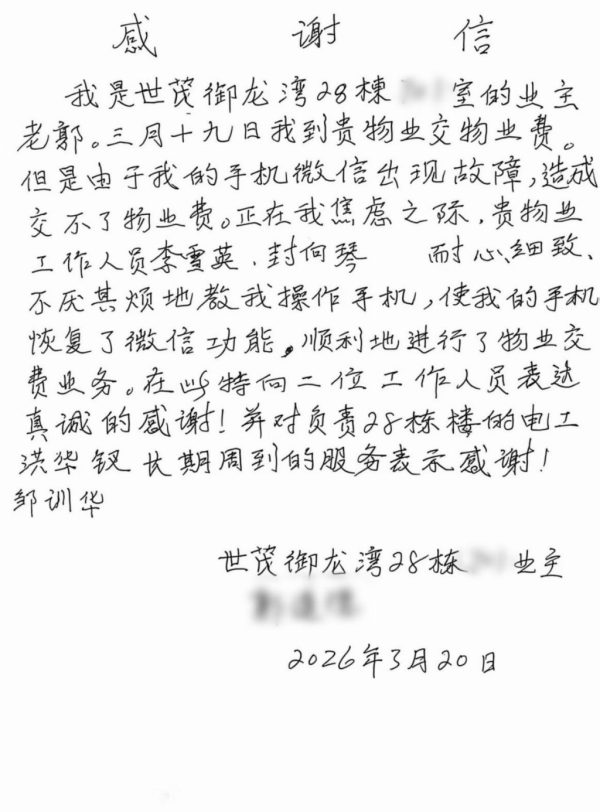 感谢信
我是世茂御龙湾28栋 室的业主
老郭。三月十九日我到贵物业交物业费。
但是由于我的手机微信出现故障,造成
交不了物业费。正在我焦虑之际,贵物业
工作人员李雪英、封向琴 耐心细致、
不厌其烦地教我操作手机,使我的手机
恢复了微信功能,顺利地进行了物业交
费业务。在此特向二位工作人员表达
真诚的感谢!并对负责28栋楼的电工
洪华钗 长期周到的服务表示感谢!
邹训华
世茂御龙湾28栋 业主
2026年3月20日